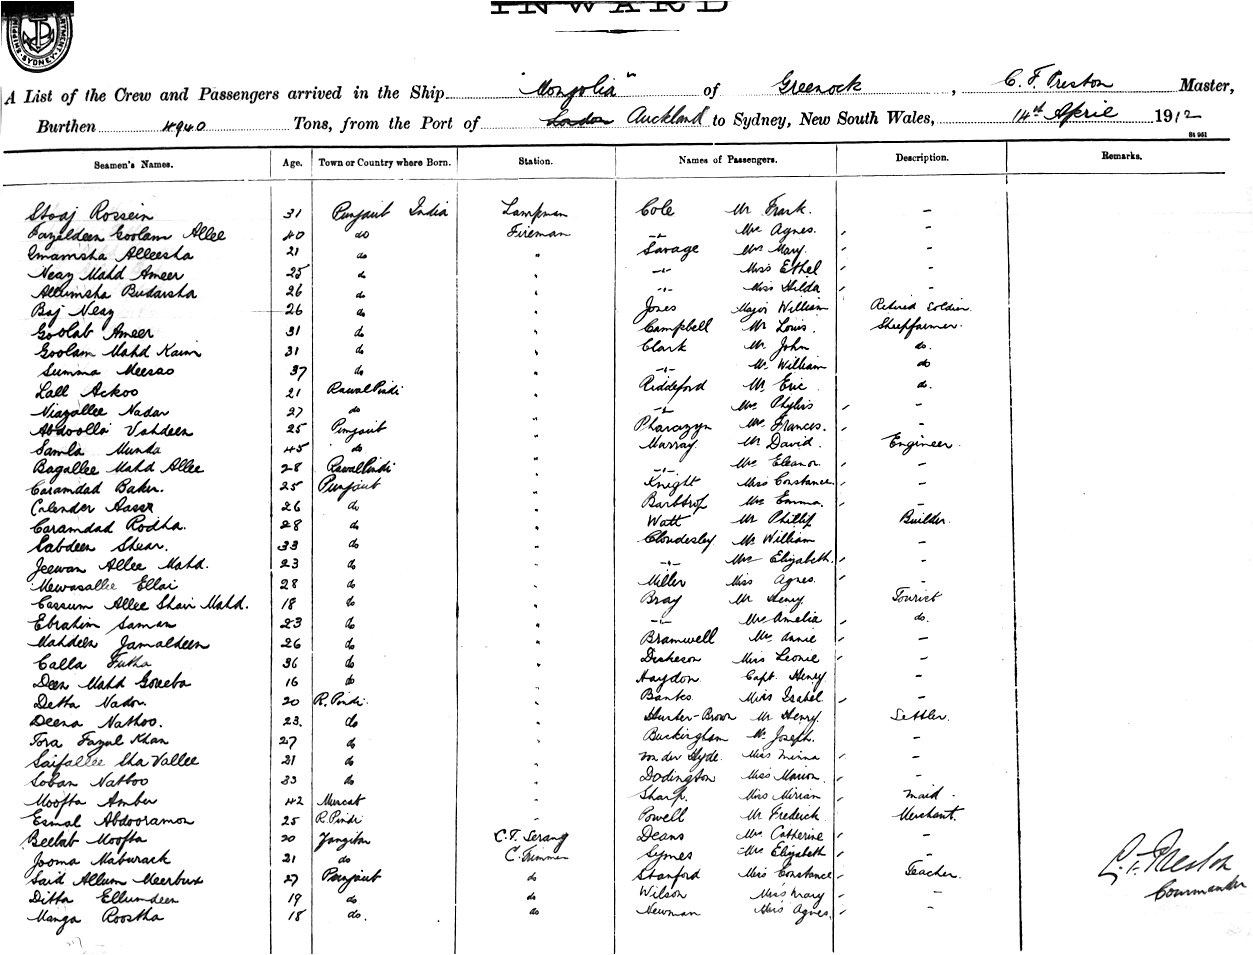 INWARD
SHIPPING DEPARTMENT. SYDNEY
A List of the Crew and Passengers arrived in the Ship "Mongolia" of Greenock, C. F. Preston Master,
Burthen 4940 Tons, from the Port of London Auckland to Sydney, New South Wales, 14th April 1912
St 961
Seamen's Names. Age. Town or Country where Born. Station. Names of Passengers. Description. Remarks.
Rossein 31 Punjaub India Lampman Cole Mr Frank. –
Fazaldeen Goolam Allee 40 do Fireman -"- Mrs Agnes. –
Imamsha Alleesha 21 do " Savage Mrs Mary. –
Neaz Mahd Ameer 25 do " -"- Miss Ethel –
Allumsha Budarsha 26 do " -"- Miss Hilda –
Baj Neaz 26 do " Jones Major William Retired Soldier
Goolab Ameer 31 do " Campbell Mr Louis. Sheepfarmer.
Goolam Mahd Kaim 31 do " Clark Mr John do.
Summa Meesao 37 do " -"- Mr William do
Lall Ackoo 21 RawalPindi " Riddeford Mr Eric do.
Niazallee Nadar 27 do " -"- Mrs Phyllis –
Abdoolla Vahdeen 25 Punjaub " Pharazyn Mrs Frances. –
Samla Munda 45 do " Murray Mr David. Engineer.
Bagallee Mahd Allee 28 RawalPindi " -"- Mrs Eleanor –
Caramdad Baker. 25 Punjaub " Knight Miss Constance. –
Calender 26 do " Mrs Emma. –
Caramdad Rodha. 28 do " Watt Mr Phillip Builder.
Sabdeen Shear. 33 do " Cloudesley Mr William –
Jeewan Allee Mahd. 23 do " -"- Mrs Elizabeth. –
Mewasallee Ellai 28 do " Miller Miss Agnes. –
Cassum Allee Shair Mahd. 18 do " Bray Mr Henry. Tourist
Ebrahim Saman 23 do " -"- Mrs Amelia do.
Mahdeen Jamaldeen 26 do " Bramwell Mrs Annie –
Calla Futha 36 do " Dickeson Miss Leonie –
Deen Mahd Goueba 16 do " Haydon Capt. Henry –
Detha Nador 20 R. Pindi. " Banks Miss Isabel –
Deena Nathoo. 23. do " Hunter-Brown Mr Henry. Settler.
Tora Fazul Khan 27 do " Buckingham Mr Joseph. –
Saifallee Sha Vallee 21 do " von der Hyde. Miss Minna –
Soban Nathoo 33 do " Dodington Miss Marion. –
Moofta Amber 42 Muscat " Sharp. Miss Miriam Maid.
Esmal Abdooramon 25 R. Pindi " Powell Mr Frederick Merchant.
Beelab Moofta 20 Zanzibar C.T. Serang Deans Mrs Catherine –
Jooma Maburack 21 do C. Trimmer Symes Mrs Elizabeth –
Said Allum Meerbux 27 Punjaub do Stanford Miss Constance. Teacher.
Ditta Ellumdeen 19 do do Wilson Miss Mary –
Manga Roostha 18 do. do Newman Miss Agnes. –
C. F. Preston
Commander